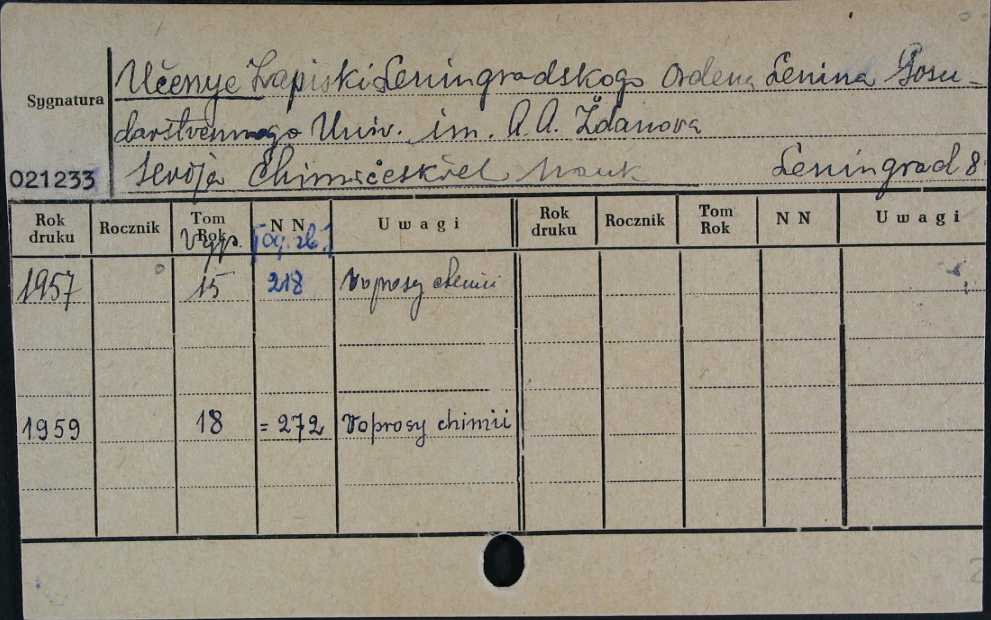 Učenye Zapiski Leningradskogo Ordena Lenina Gosu-
Sygnatura
darstvennogo Univ. im. A. A. Ždanova
021233 Serija Chimičeskich Nauk Leningrad 8
Rok druku Rocznik Tom Rok NN Uwagi Rok druku Rocznik Tom Rok NN Uwagi
Vyp. [Og. zb.]
1957 15 218 Voprosy chimii
1959 18 = 272 Voprosy chimii